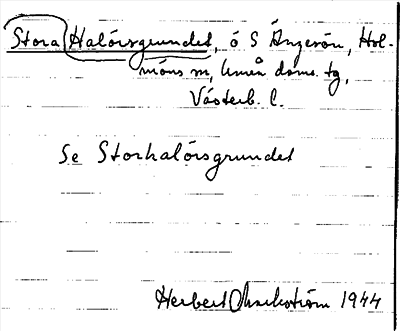 Stora Halörsgrundet, ö S Ängesön, Hol-
möns sn, Umeå doms. tg,
Västerb. l.
Se Storhalörsgrundet
Herbert Markström 1944